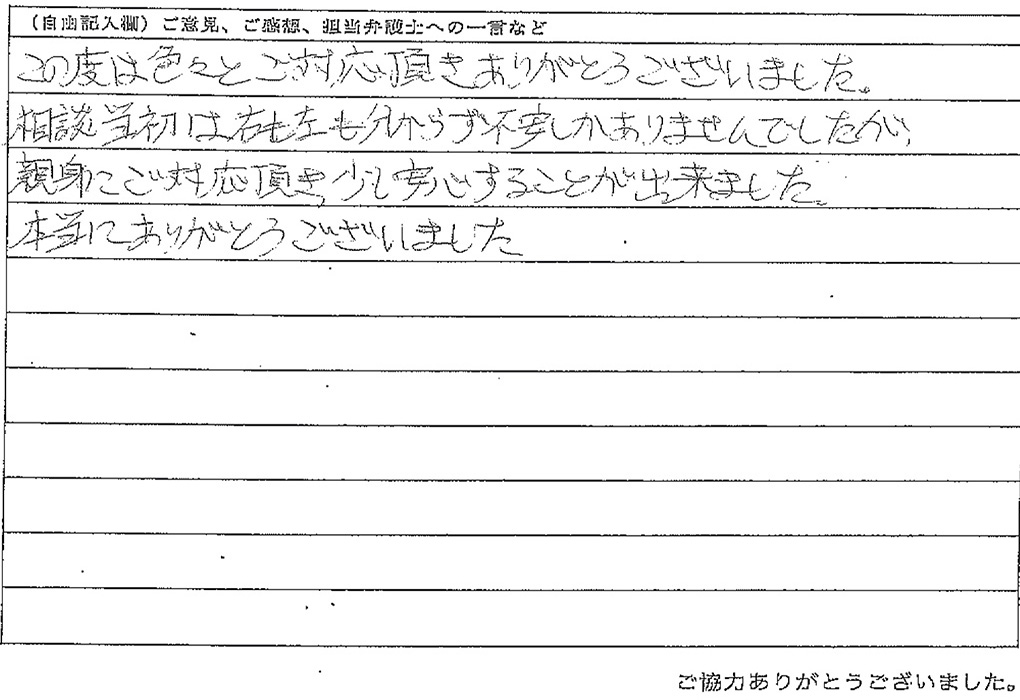 （自由記入欄）ご意見、ご感想、担当弁護士への一言など
この度は色々とご対応頂きありがとうございました。
相談当初は右も左も分からず不安しかありませんでしたが、
親身にご対応頂き、少し安心することが出来ました。
本当にありがとうございました
ご協力ありがとうございました。